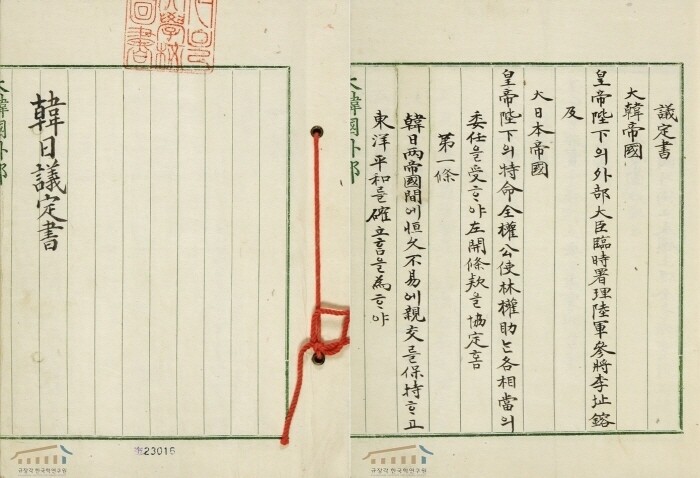 韓日議定書
大韓國外部
23016
규장각한국학연구원
議定書
大韓帝國
皇帝陛下의外部大臣臨時署理陸軍參將李址鎔
及
大日本帝國
皇帝陛下의特命全權公使林權助는各相當의
委任을受ᄒᆞ야左開條款을協定홈
第一條
韓日兩帝國間에恒久不易에親交를保持ᄒᆞ고
東洋平和를確立홈을為ᄒᆞ야
大韓國外部
규장각한국학연구원